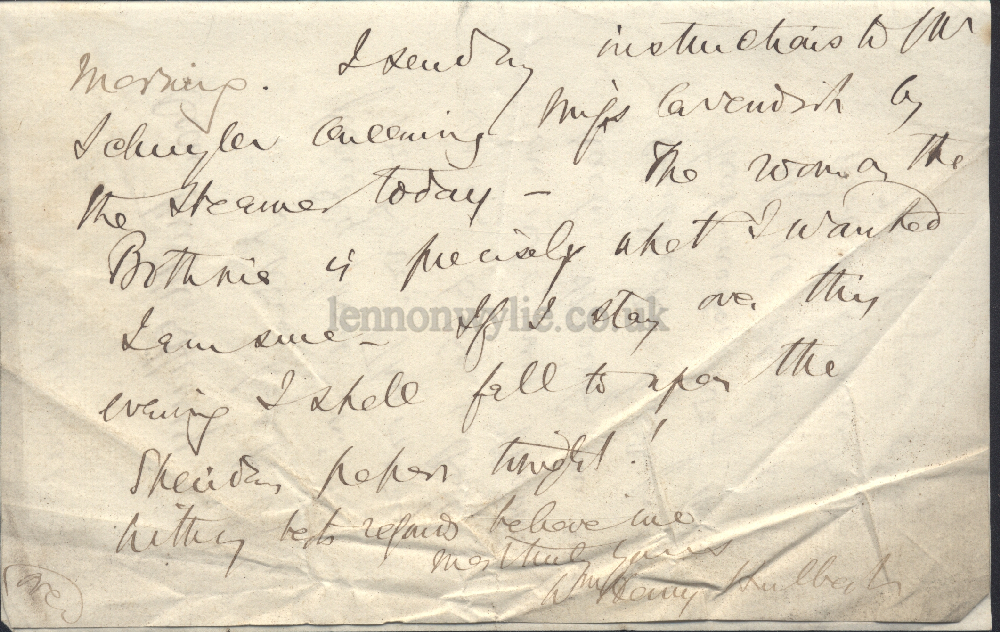 Morning. I send my instructions to Mr
Schuyler concerning Miss Cavendish by
the steamer today — The room on the
Bothnia is precisely what I wanted
I am sure — If I stay over this
lennonwylie.co.uk
evening I shall fall to upon the
Sheridan papers tonight!
With my best regards believe me
Most truly yours
Wm Henry Hurlbert
over